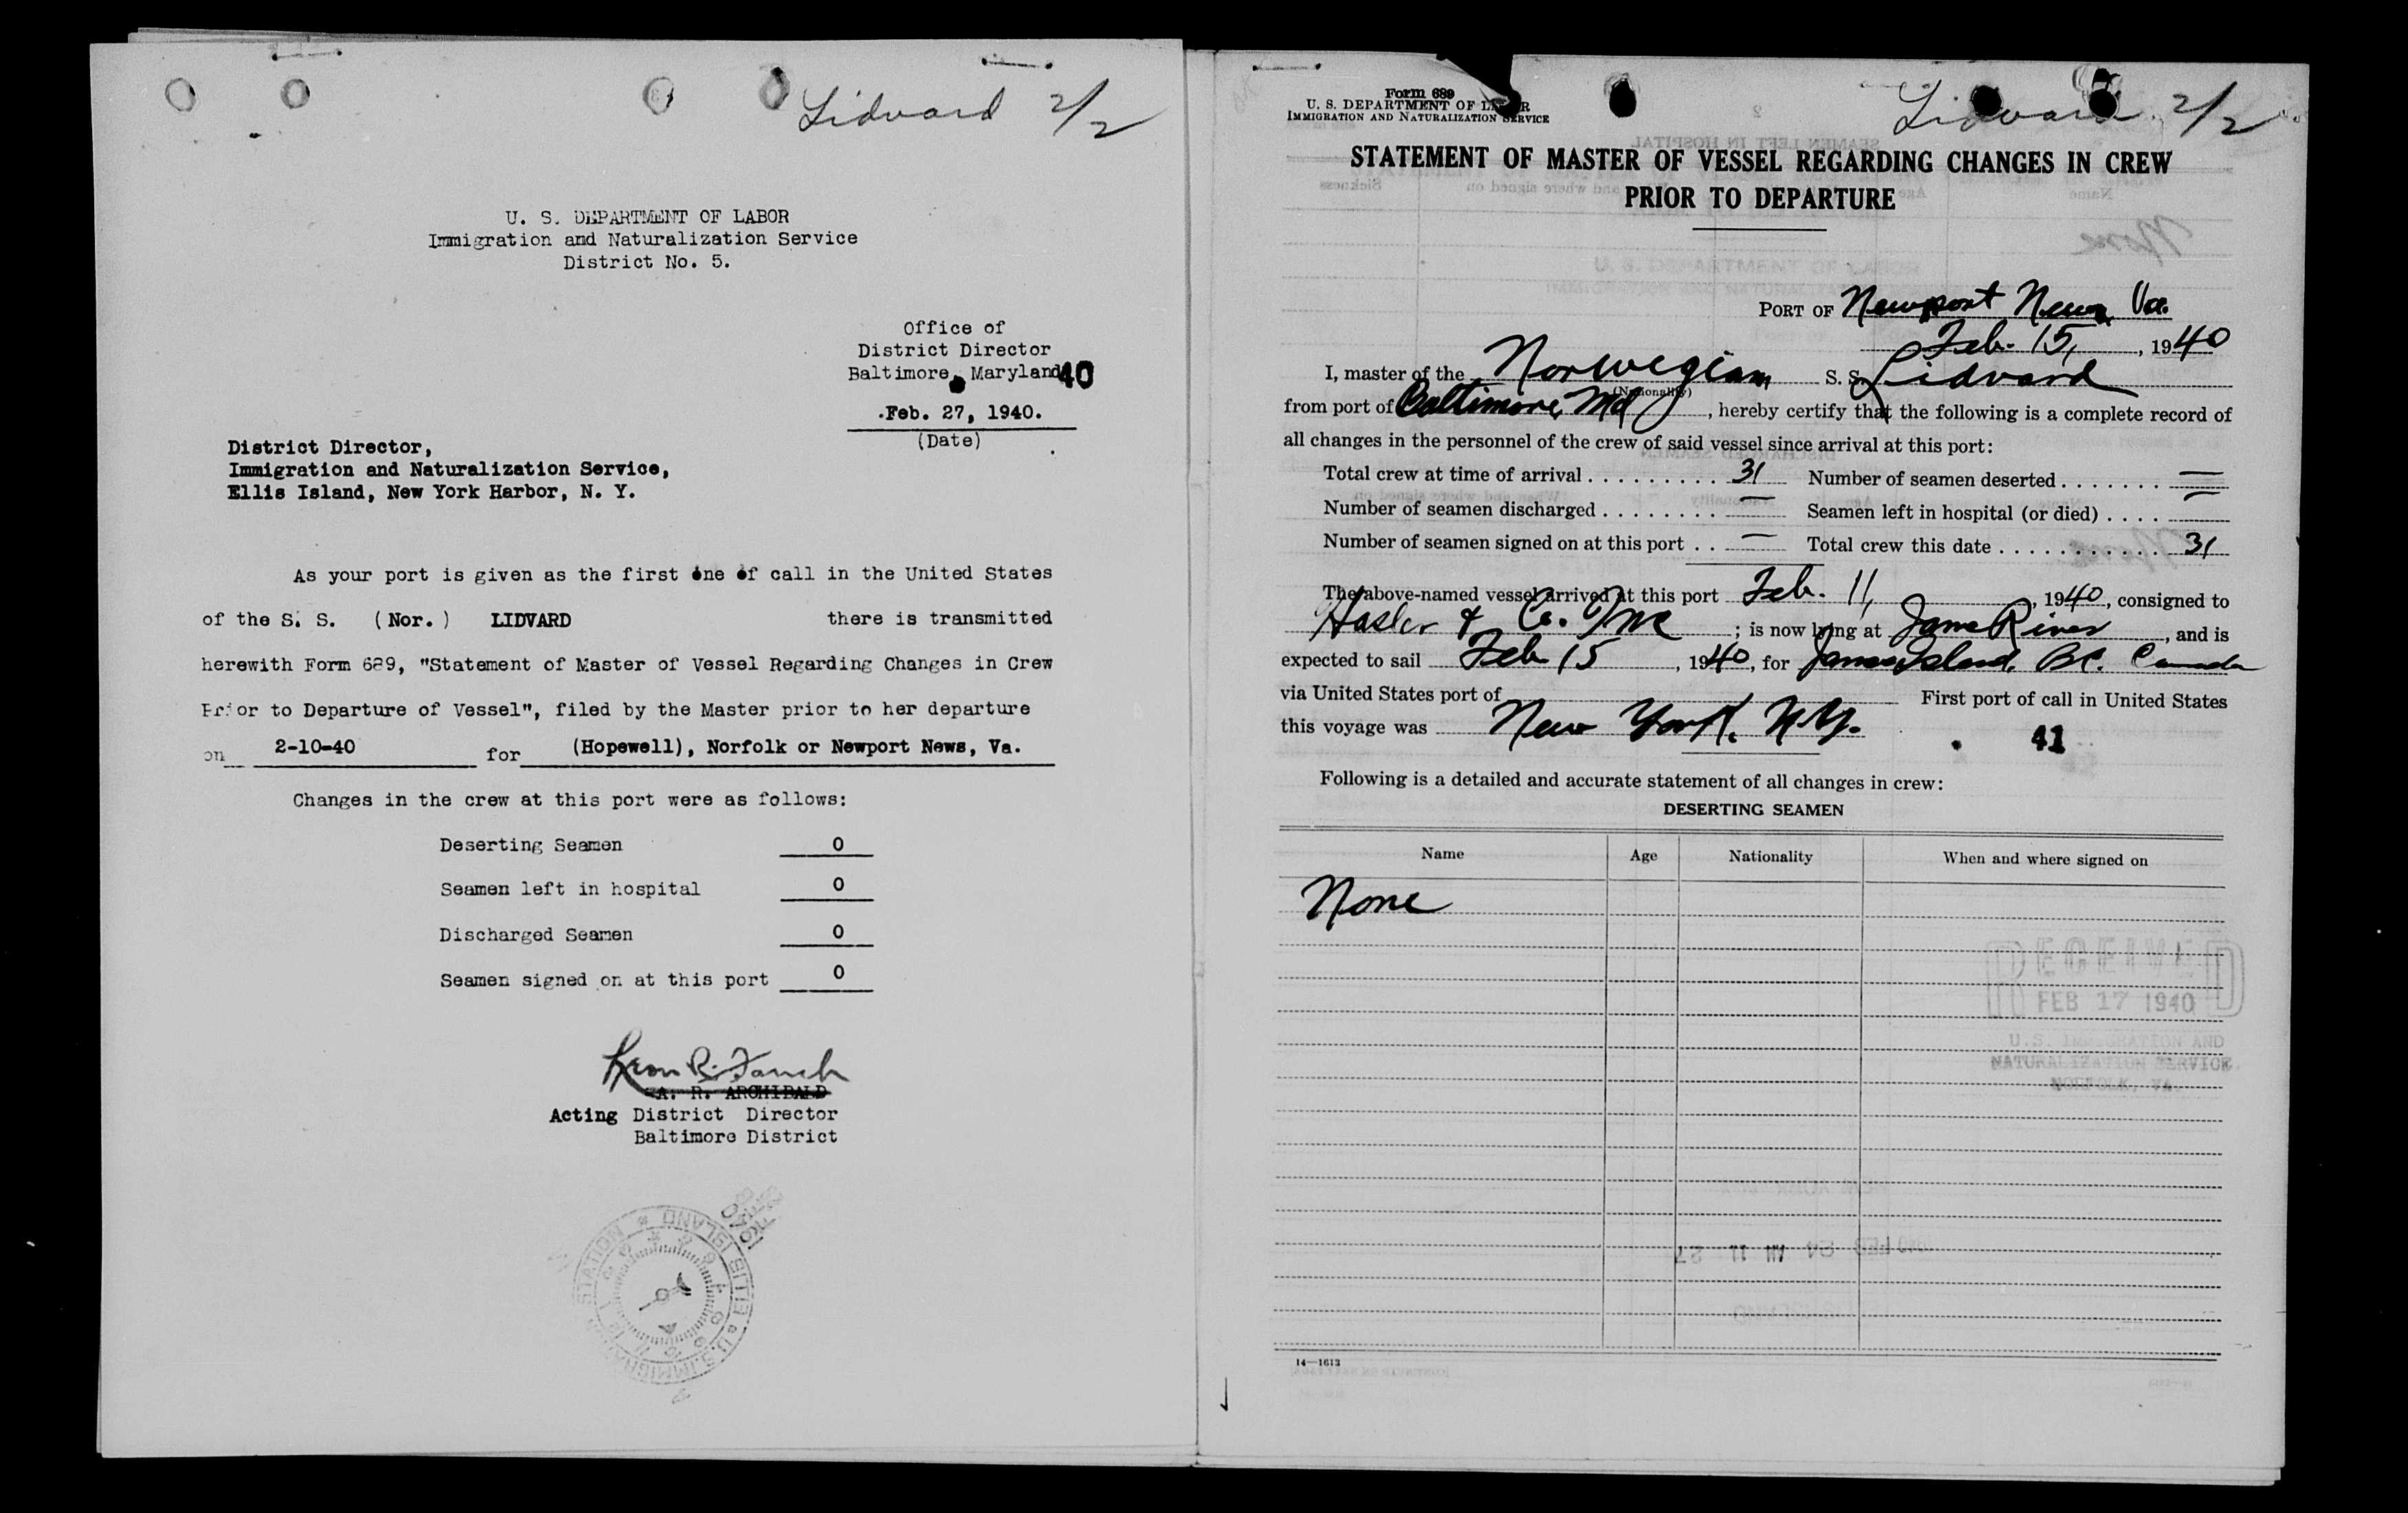 Lidvard 2/2
U. S. DEPARTMENT OF LABOR
Immigration and Naturalization Service
District No. 5.
Office of
District Director
Baltimore, Maryland
40
Feb. 27, 1940.
(Date)
District Director,
Immigration and Naturalization Service,
Ellis Island, New York Harbor, N. Y.
As your port is given as the first one of call in the United States
of the S. S. (Nor.) LIDVARD there is transmitted
herewith Form 689, "Statement of Master of Vessel Regarding Changes in Crew
Prior to Departure of Vessel", filed by the Master prior to her departure
on 2-10-40 for (Hopewell), Norfolk or Newport News, Va.
Changes in the crew at this port were as follows:
Deserting Seamen 0
Seamen left in hospital 0
Discharged Seamen 0
Seamen signed on at this port 0
A. R. ARCHIBALD
Acting District Director
Baltimore District
U.S. IMMIGRATION STATION * ELLIS ISLAND *
1940
Lidvard 2/2
Form 689
U. S. DEPARTMENT OF LABOR
IMMIGRATION AND NATURALIZATION SERVICE
STATEMENT OF MASTER OF VESSEL REGARDING CHANGES IN CREW
PRIOR TO DEPARTURE
PORT OF Newport News, Va.
Feb. 15, 1940
I, master of the Norwegian S. S. Lidvard
(Nationality)
from port of Baltimore, Md, hereby certify that the following is a complete record of
all changes in the personnel of the crew of said vessel since arrival at this port:
Total crew at time of arrival . . . . . . . . . . 31 Number of seamen deserted . . . . . . . —
Number of seamen discharged . . . . . . . . — Seamen left in hospital (or died) . . . . —
Number of seamen signed on at this port . . — Total crew this date . . . . . . . . . . . . 31
The above-named vessel arrived at this port Feb. 11, 1940, consigned to
Hasler & Co. Inc ; is now lying at James River, and is
expected to sail Feb 15, 1940, for James Island, B.C. Canada
via United States port of First port of call in United States
this voyage was New York, N.Y.
41
Following is a detailed and accurate statement of all changes in crew:
DESERTING SEAMEN
Name Age Nationality When and where signed on
None
RECEIVED
FEB 17 1940
U.S. IMMIGRATION AND
NATURALIZATION SERVICE
NORFOLK, VA.
14—1613